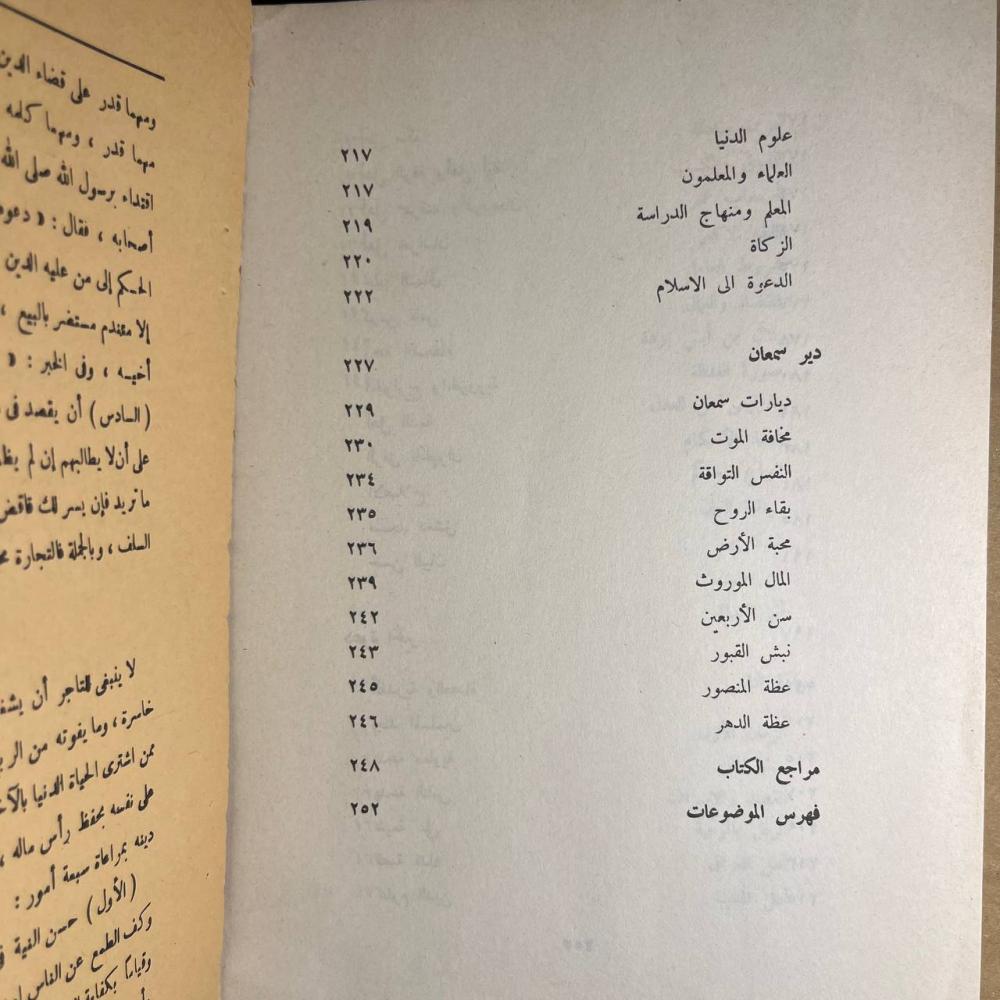 علوم الدنيا ٢١٧
العلماء والمعلمون ٢١٧
المعلم ومنهاج الدراسة ٢١٩
الزكاة ٢٢٠
الدعوة الى الاسلام ٢٢٢
دير سمعان ٢٢٧
ديارات سمعان ٢٢٩
مخافة الموت ٢٣٠
النفس التواقة ٢٣٤
بقاء الروح ٢٣٥
محبة الأرض ٢٣٦
المال الموروث ٢٣٩
سن الأربعين ٢٤٢
نبش القبور ٢٤٣
عظة المنصور ٢٤٥
عظة الدهر ٢٤٦
مراجع الكتاب ٢٤٨
فهرس الموضوعات ٢٥٢
ومهما قدر على قضاء الدين
مهما قدر ، ومهما كلمه
اقتداء برسول الله صلى الله
أصحابه ، فقال : « دعوه
الحكم إلى من عليه الدين
إلا مقندم مستضر بالبيع ،
أخيه ، وفى الخبر : «
(السادس) أن يقصد فى
على أن لا يطالبهم إن لم يظ
ما تريد فإن يسر لك فاقض
السلف ، وبالجملة فالتجارة
لا ينبغى للتاجر أن
خاسرة ، وما يفوته من الر
ممن اشترى الحياة الدنيا بالآ
على نفسه بحفظ رأس ماله ،
دينه بمراعاة سبعة أمور :
(الأول) حسن النية
وكف الطمع عن الناس
وقياما